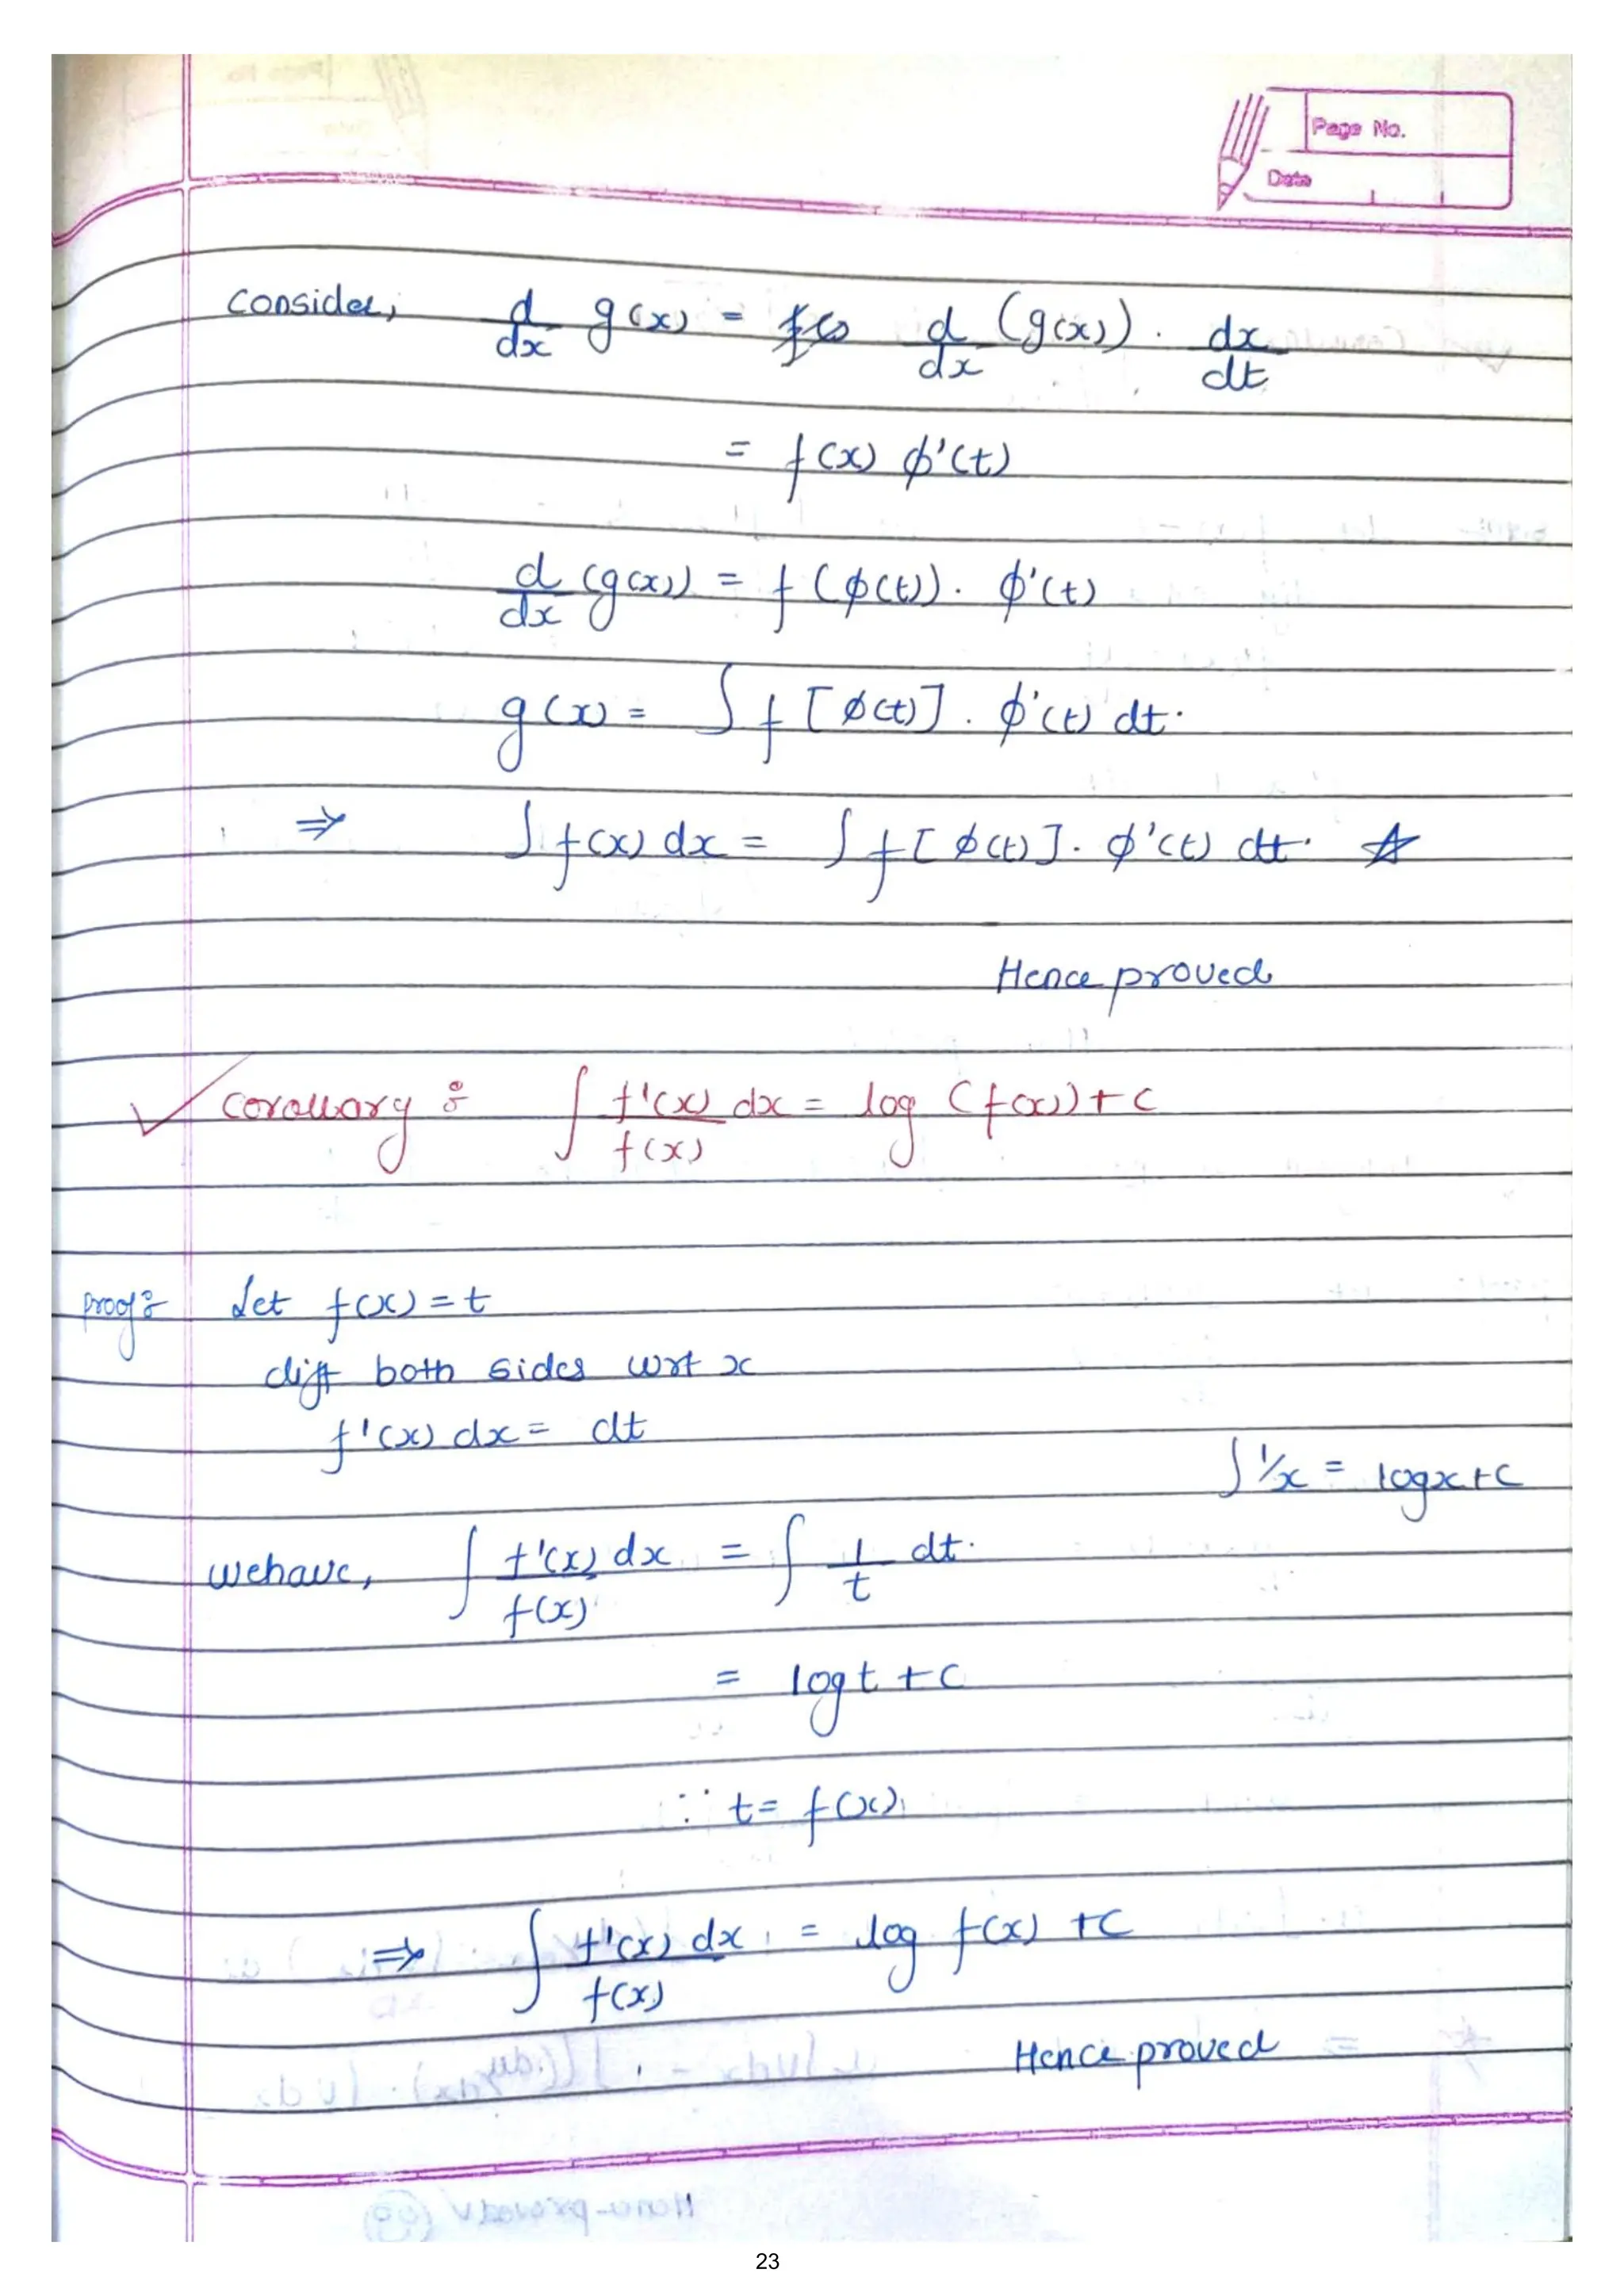 Page No.
Date
Consider, d/dx g(x) = d/dx (g(x)) · dx/dt
= f(x) ϕ'(t)
d/dx (g(x)) = f(ϕ(t)) · ϕ'(t)
g(x) = ∫ f[ϕ(t)] · ϕ'(t) dt.
⇒ ∫ f(x) dx = ∫ f[ϕ(t)] · ϕ'(t) dt. ☆
Hence proved
✓ Corollary : ∫ f'(x)/f(x) dx = log (f(x)) + c
proof: Let f(x) = t
diff both sides wrt x
f'(x) dx = dt
∫ 1/x = logx + c
we have, ∫ f'(x)/f(x) dx = ∫ 1/t dt.
= log t + c
∵ t = f(x)
⇒ ∫ f'(x)/f(x) dx = log f(x) + c
Hence proved
23